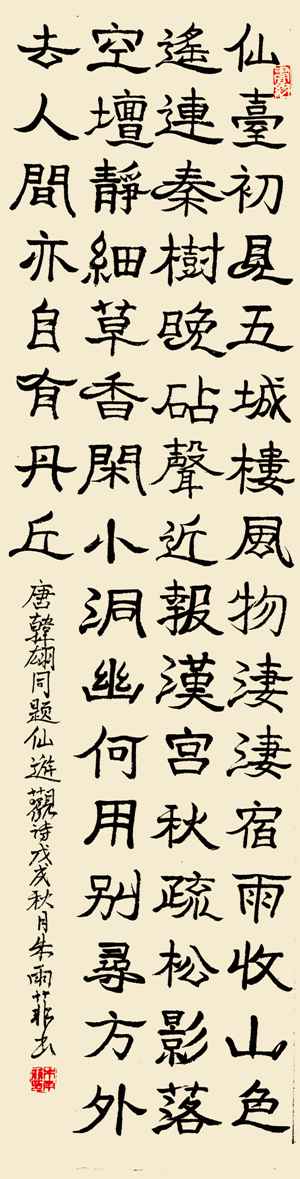 仙臺初見五城樓風物淒淒宿雨收山色
遙連秦樹晚砧聲近報漢宮秋疏松影落
空壇靜細草香閑小洞幽何用别尋方外
去人間亦自有丹丘
唐韓翃同题仙遊觀詩戊戌秋月朱雨菲书